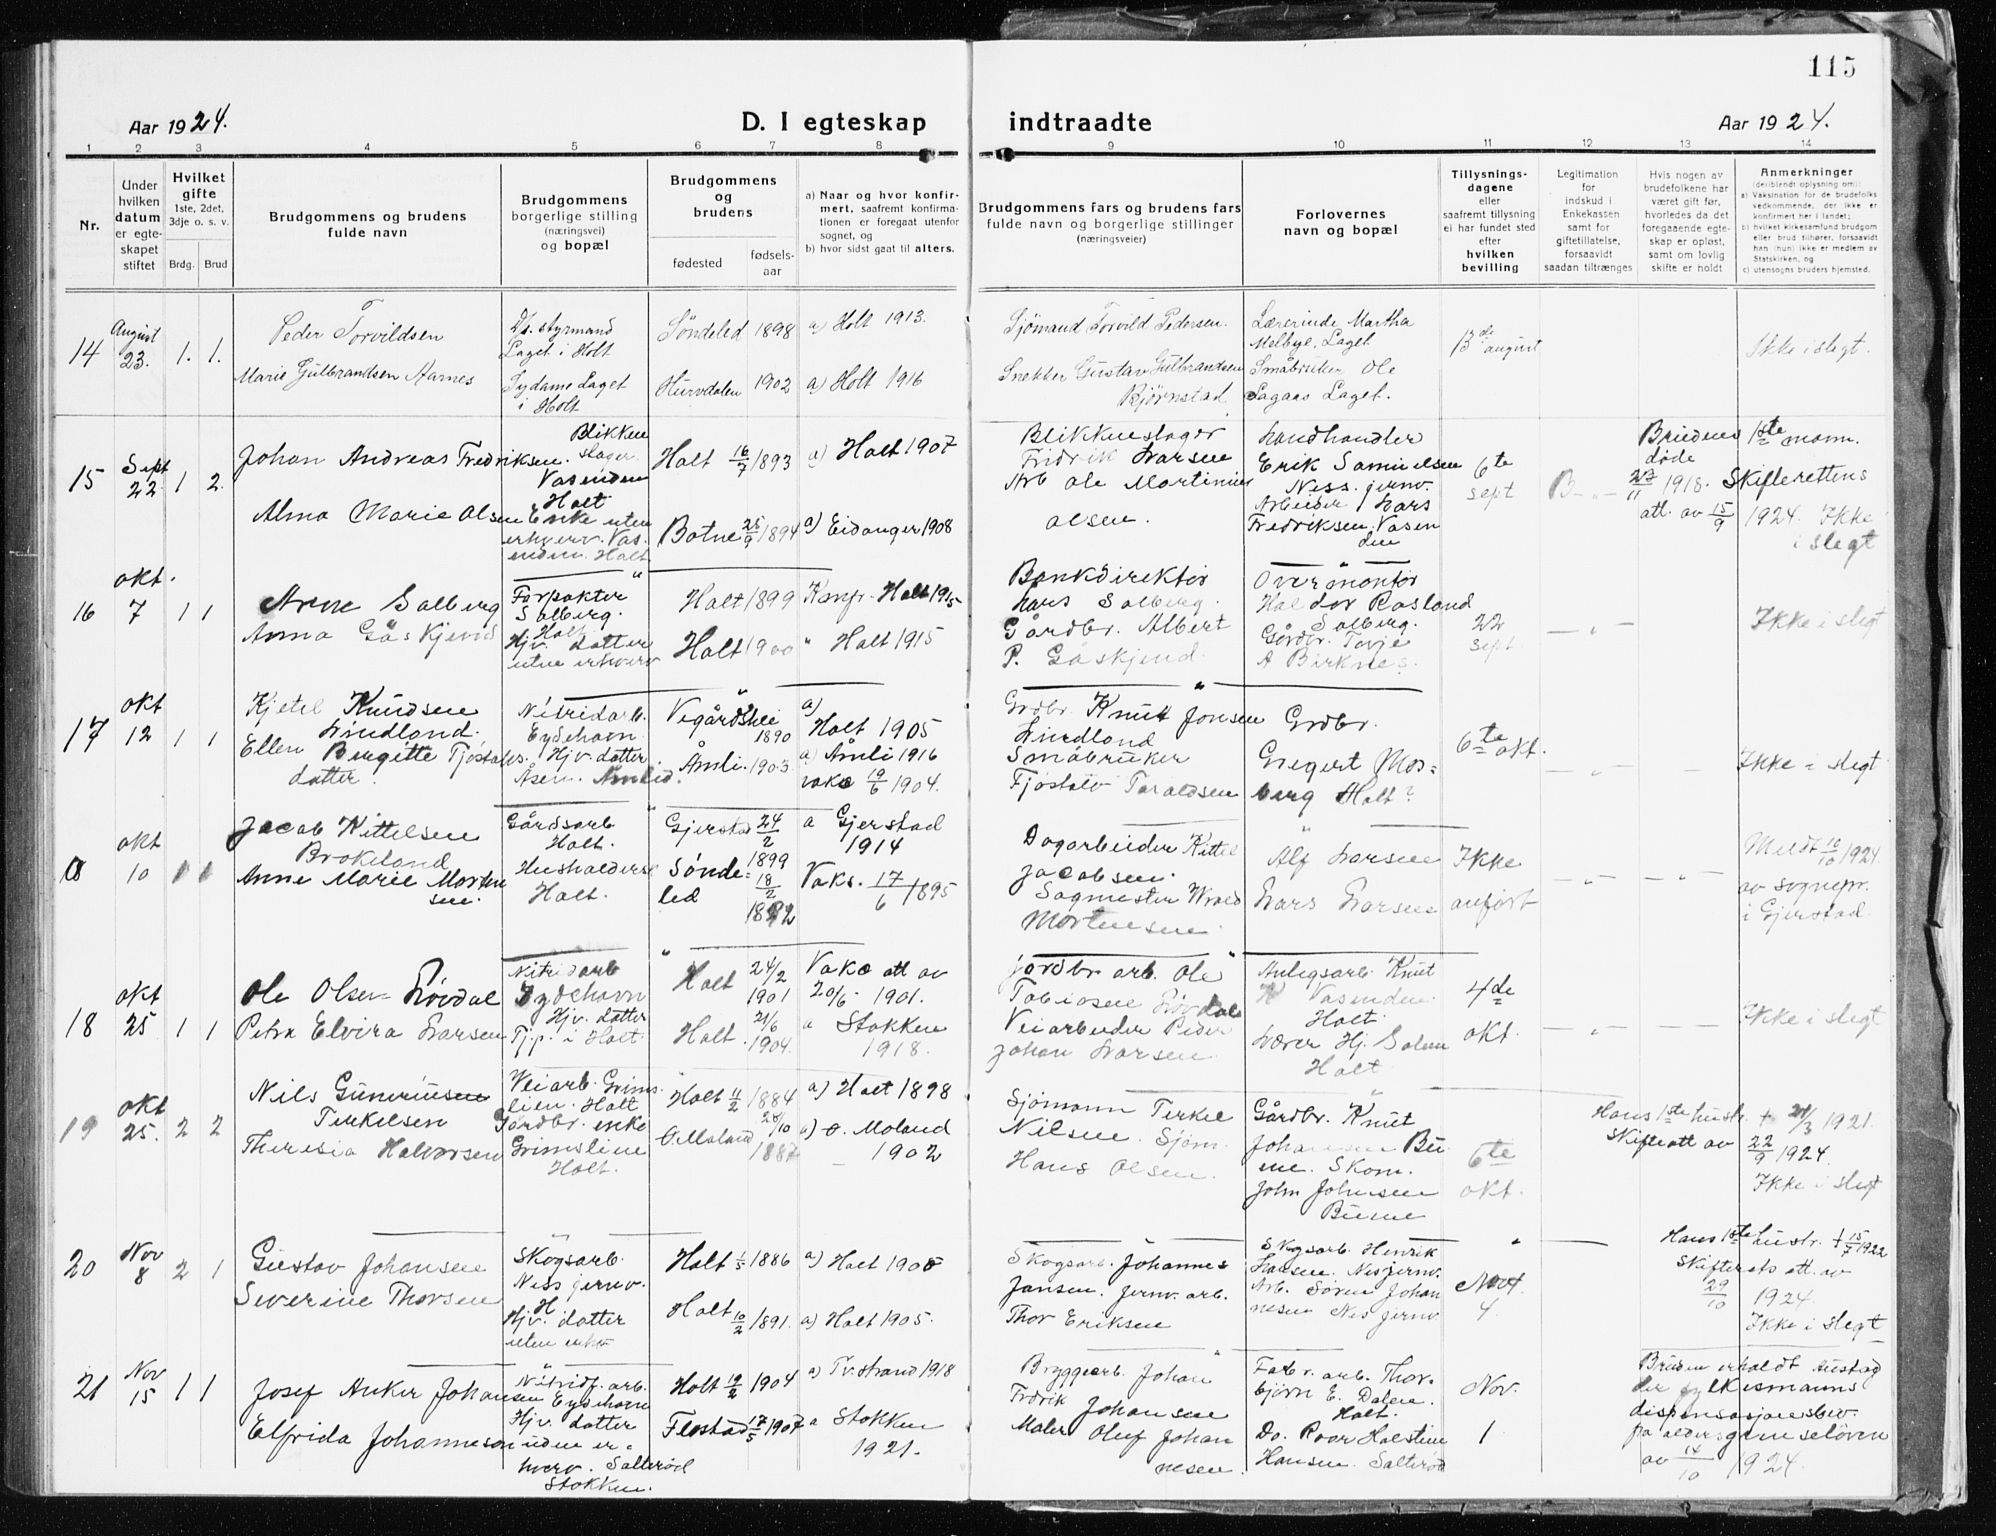 115
Aar 1924.
D. I egteskap
indtraadte
Aar 1924.
1 2 3 4 5 6 7 8 9 10 11 12 13 14
Nr.
Under hvilken datum er egteskapet stiftet
Hvilket gifte 1ste, 2det, 3dje o. s. v.
Brdg. Brud
Brudgommens og brudens fulde navn
Brudgommens og brudens borgerlige stilling (næringsvei) og bopæl
Brudgommens og brudens
fødested
fødsels-aar
a) Naar og hvor konfirmert, saafremt konfirmationen er foregaat utenfor sognet, og
b) hvor sidst gaat til alters.
Brudgommens fars og brudens fars fulde navn og borgerlige stillinger (næringsveier)
Forlovernes navn og bopæl
Tillysnings-dagene eller saafremt tillysning ei har fundet sted efter hvilken bevilling
Legitimation for indskud i Enkekassen samt for giftetillatelse, forsaavidt saadan tiltrænges
Hvis nogen av brudefolkene har været gift før, hvorledes da det foregaaende egteskap er opløst, samt om lovlig skifte er holdt
Anmerkninger
14
August
23.
1. 1.
Peder Torvildsen
Marie Gulbrandsen Aarnes
Ds. styrmand
Laget i Holt
Sydame Laget
i Holt
Søndeled 1898
Hurvdalen 1902
a) Holt 1913.
a) Holt 1916
Sjömand Torvild Pedersen.
Snekker Gustav Gulbrandsen
Bjørnstad
Lærerinde Martha
Melbye, Laget
Småbruker Ole
Sagaas Laget.
13de august
Ikke i slegt.
15
Sept
22.
1 2.
Johan Andreas Fredriksen.
Alma Marie Olsen
Blikken
slager.
Vasenden
Holt
Enke uten
erhverv. Vas-
enden. Holt
Holt 16/7 1893
Botne 25/9 1894
a) Holt 1907
a) Eidanger 1908
Blikkenslager
Fridrik Larsen
Arb Ole Martinius
Olsen.
Landhandler
Erik Samuelsen
Ness. jernv.
Arbeider Lars
Fredriksen Vasen
den
6te
sept
B - " -
Brudens 1ste mann.
døde
23/11 1918. Skifterettens
att. av 15/9 1924. Ikke
i slegt
16
okt.
7
1 1
Arne Solberg
Anna Gåskjend
Forpakter
Solberg.
Holt
Hjv. datter
uten erhverv
Holt 1899
Holt 1900
Konfr. Holt 1915
" Holt 1915
Bankdirektør
Lars Solberg.
Gårdbr. Albert
P. Gåskjend.
Overmontør
Haldor Rosland
Solberg.
Gårdbr. Tovje
A Birknes.
22
sept
— " —
Ikke i slegt
17
okt
12
1 1
Kjetel Knudsen
Lindland.
Ellen Birgitte Tjøstolvs.
datter.
Nitridarb.
Eydehavn
Hjv. datter.
Åsen. Åmlid.
Vegårdshei
1890
Åmli. 1903
a)
Holt 1905
a) Åmli 1916
vaks 19/6 1904.
Grdbr. Knut Jonsen
Lindland
Småbruker
Tjøstolv Taraldsen
Grdbr.
Gregert Mos=
berg Holt?
6te okt.
— " —
Ikke i slegt
18
okt
10
1 1
Jacob Kittelsen
Brokeland
Anne Marie Morten
sen.
Gårdsarb
Holt.
Husholderske
Holt.
Gjerstad 24/2
1899
Sønde=
led
18/2
1892
a Gjerstad
1914
Vaks. 17/6 1895
Dagarbeider Kittel
Jacobsen.
Sagmester
Mortensen.
Alf Larsen
Lars Larsen
Ikke
anført
— " —
— " —
Meldt 10/10 1924
av sognepr.
i Gjerstad
18
okt
25
1 1
Ole Olsen Løvdal
Petra Elvira Larsen
Nitridarb
Eydehavn
Hjv. datter
Tjp. i Holt
Holt
24/2
1901
Holt.
21/6
1904.
Vaks att av
20/6 1901.
a Stokken
1918.
Jordbr. arb. Ole
Tobiasen Løvdal
Veiarbeider Peder
Johan Larsen
Anlegsarb. Knut
K Vasenden.
Holt.
Lærer Hj. Solem
Holt
4de
okt.
— " —
Ikke i slegt
19
okt
25.
2 2
Nils Gunerius
Terkelsen
Theresia Halvorsen
Veiarb. Grims-
lien. Holt
Gårdbr. enke
Grimslien
Holt.
Holt 11/2 1884
Ø. Moland 28/10
1887
a) Holt 1898
a) Ø. Moland
1902
Sjømann Terkel
Nilsen. Sjøm.
Hans Olsen.
Gårdbr. Knut
Johansen Bu
ene. Skom.
John Johnsen
Buene
6te
okt.
Hans 1ste hustr. + 21/3 1921.
Skifteatt av 22/9 1924.
Ikke i slegt
20
Nov
8
2 1
Gustav Johansen
Severine Thorsen
Skogsarb.
Ness jernv.
H
Hjv. datter
uten erhv
Holt 1/5 1886
Holt 10/2 1891.
a) Holt 1900
a) Holt 1905.
Skogsarb. Johannes
Jansen. Jernv. arb.
Thor Eriksen
Skogsarb. Henrik
Hansen. Nesjernv.
Arb. Søren Johan
nesen Nes jernv.
Nov
4.
Hans 1ste hustr. + 15/7 1922
Skifterets att. av
29/10 1924.
Ikke i slegt
21
Nov
15
1 1
Josef Anker Johansen
Elfrida Johannesen
Nitridf. arb.
Eydehavn
Hjv. datter
uden er-
hverv. Salterød
Stokken.
Holt 19/2 1904
Flostad 17/5 1907
a) Tv.strand 1918
a Stokken
1921.
Bryggearb. Johan
Fredrik Johansen
Maler Oluf Johan
nesen.
Fabr. arb. Thor-
bjørn E. Dalen.
Holt.
Do. Roar Holstine
Hansen. Salterød
Nov.
1
Bruden erholdt Austag
der fylkesmanns
dispensasjonsbev.
fra aldersgrenseloven
av 14/10 1924.